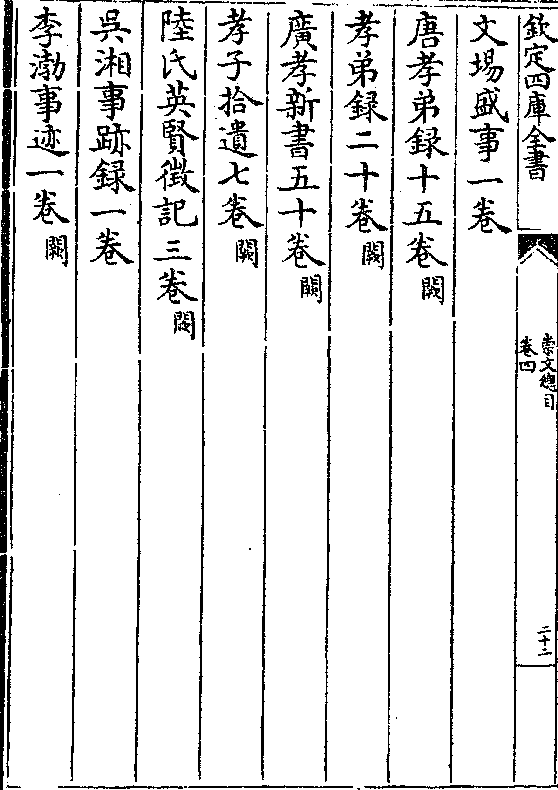 欽定四庫全書
崇文總目
卷四
二十二
文場盛事一卷
唐孝弟録十五卷闕
孝弟録二十卷闕
廣孝新書五十卷闕
孝子拾遺七卷闕
陸氏英賢徴記三卷闕
吳湘事跡録一卷
李渤事迹一卷闕